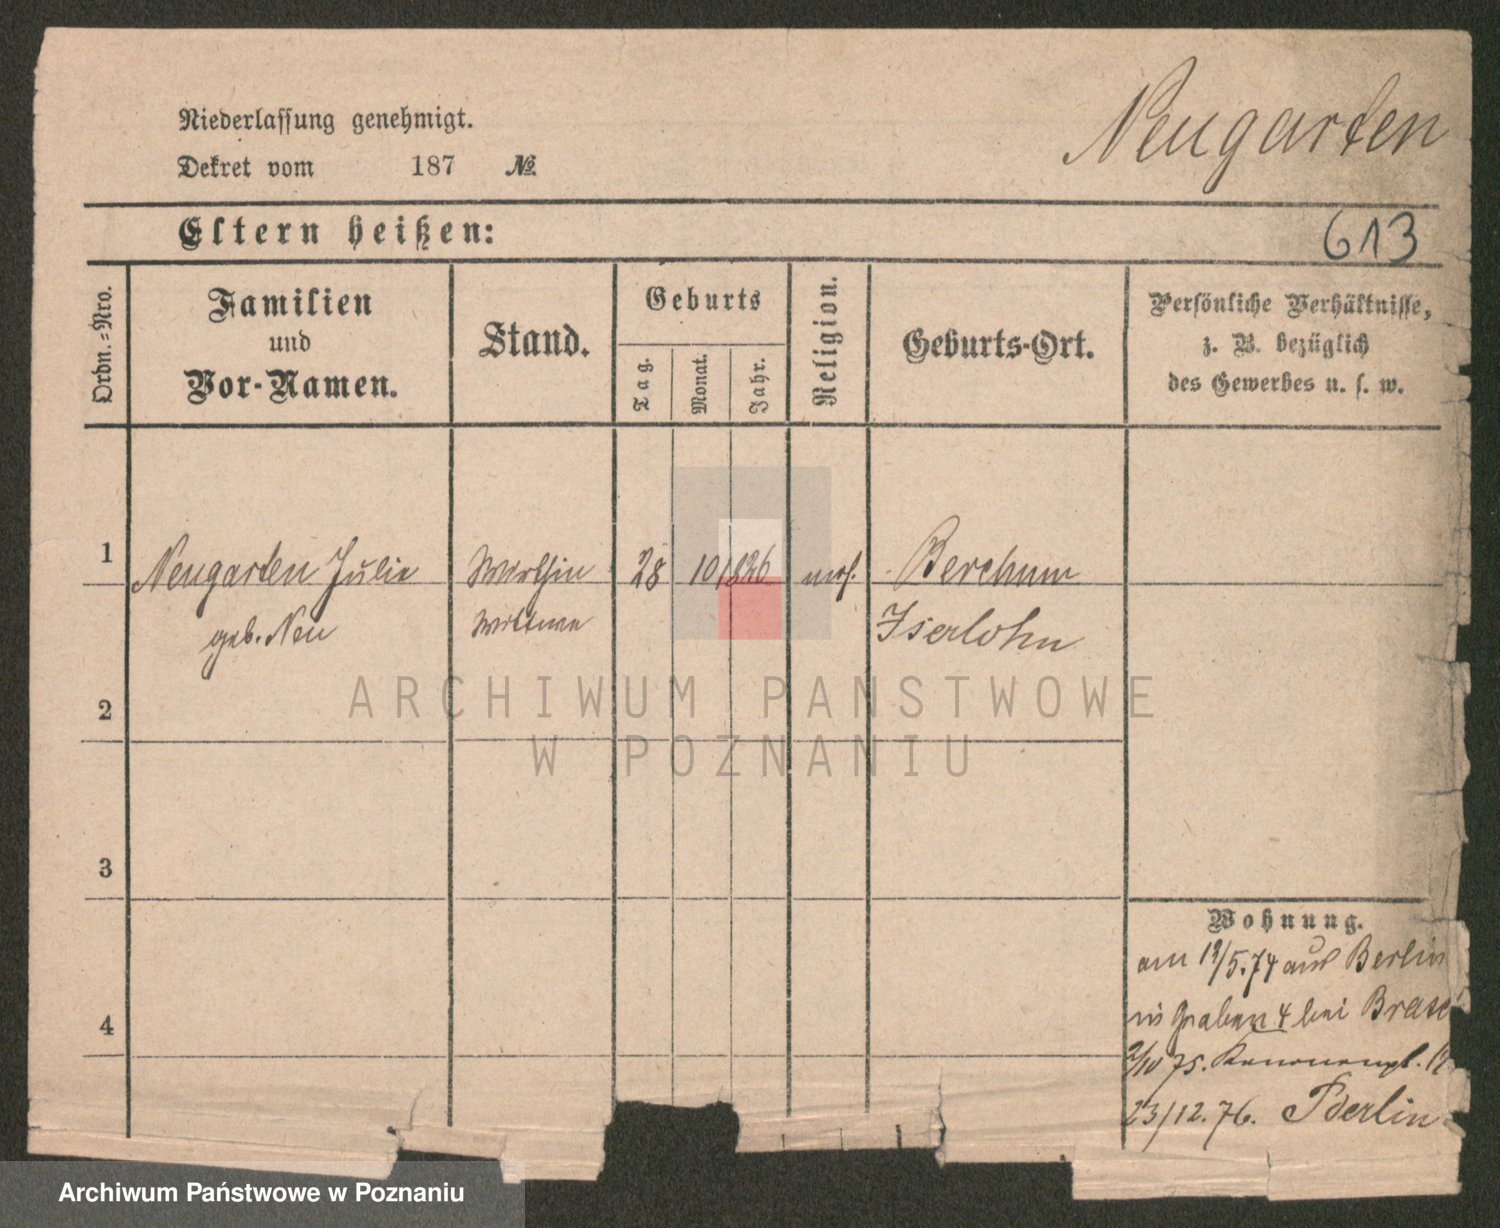 Neugarten
Niederlassung genehmigt.
Dekret vom 187 №
Eltern heißen:
613
Ordn.-Nro.
Familien
und
Vor-Namen.
Stand.
Geburts
Tag.
Monat.
Jahr.
Religion.
Geburts-Ort.
Persönliche Verhältnisse,
z. B. bezüglich
des Gewerbes u. s. w.
1 Neugarten Julie Wirthin 28 10 1826 mos. Berchum
geb. Neu Wittwe Iserlohn
2
3
4
Wohnung.
am 12/5.74 aus Berlin
in Graben 4 bei
2/10 75. Kanonenpl.
23/12.76. Berlin
ARCHIWUM PAŃSTWOWE
W POZNANIU
Archiwum Państwowe w Poznaniu